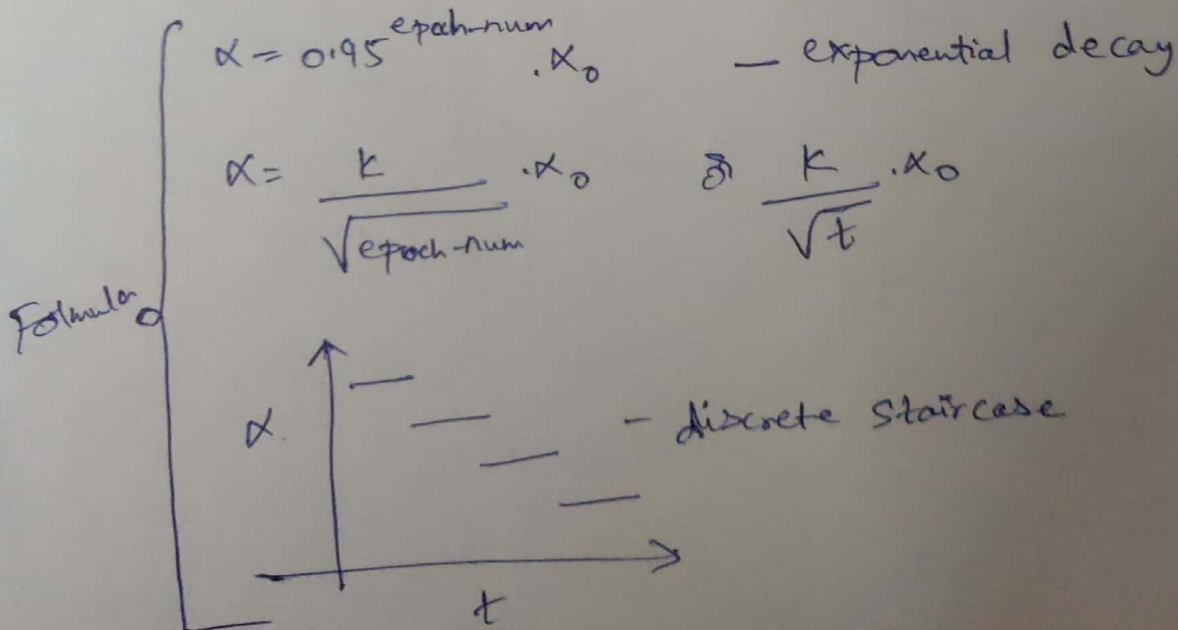 α = 0.95^epoch-num . α₀ — exponential decay
α = k / √epoch-num . α₀ or K / √t . α₀
Formula
α
- discrete staircase
t